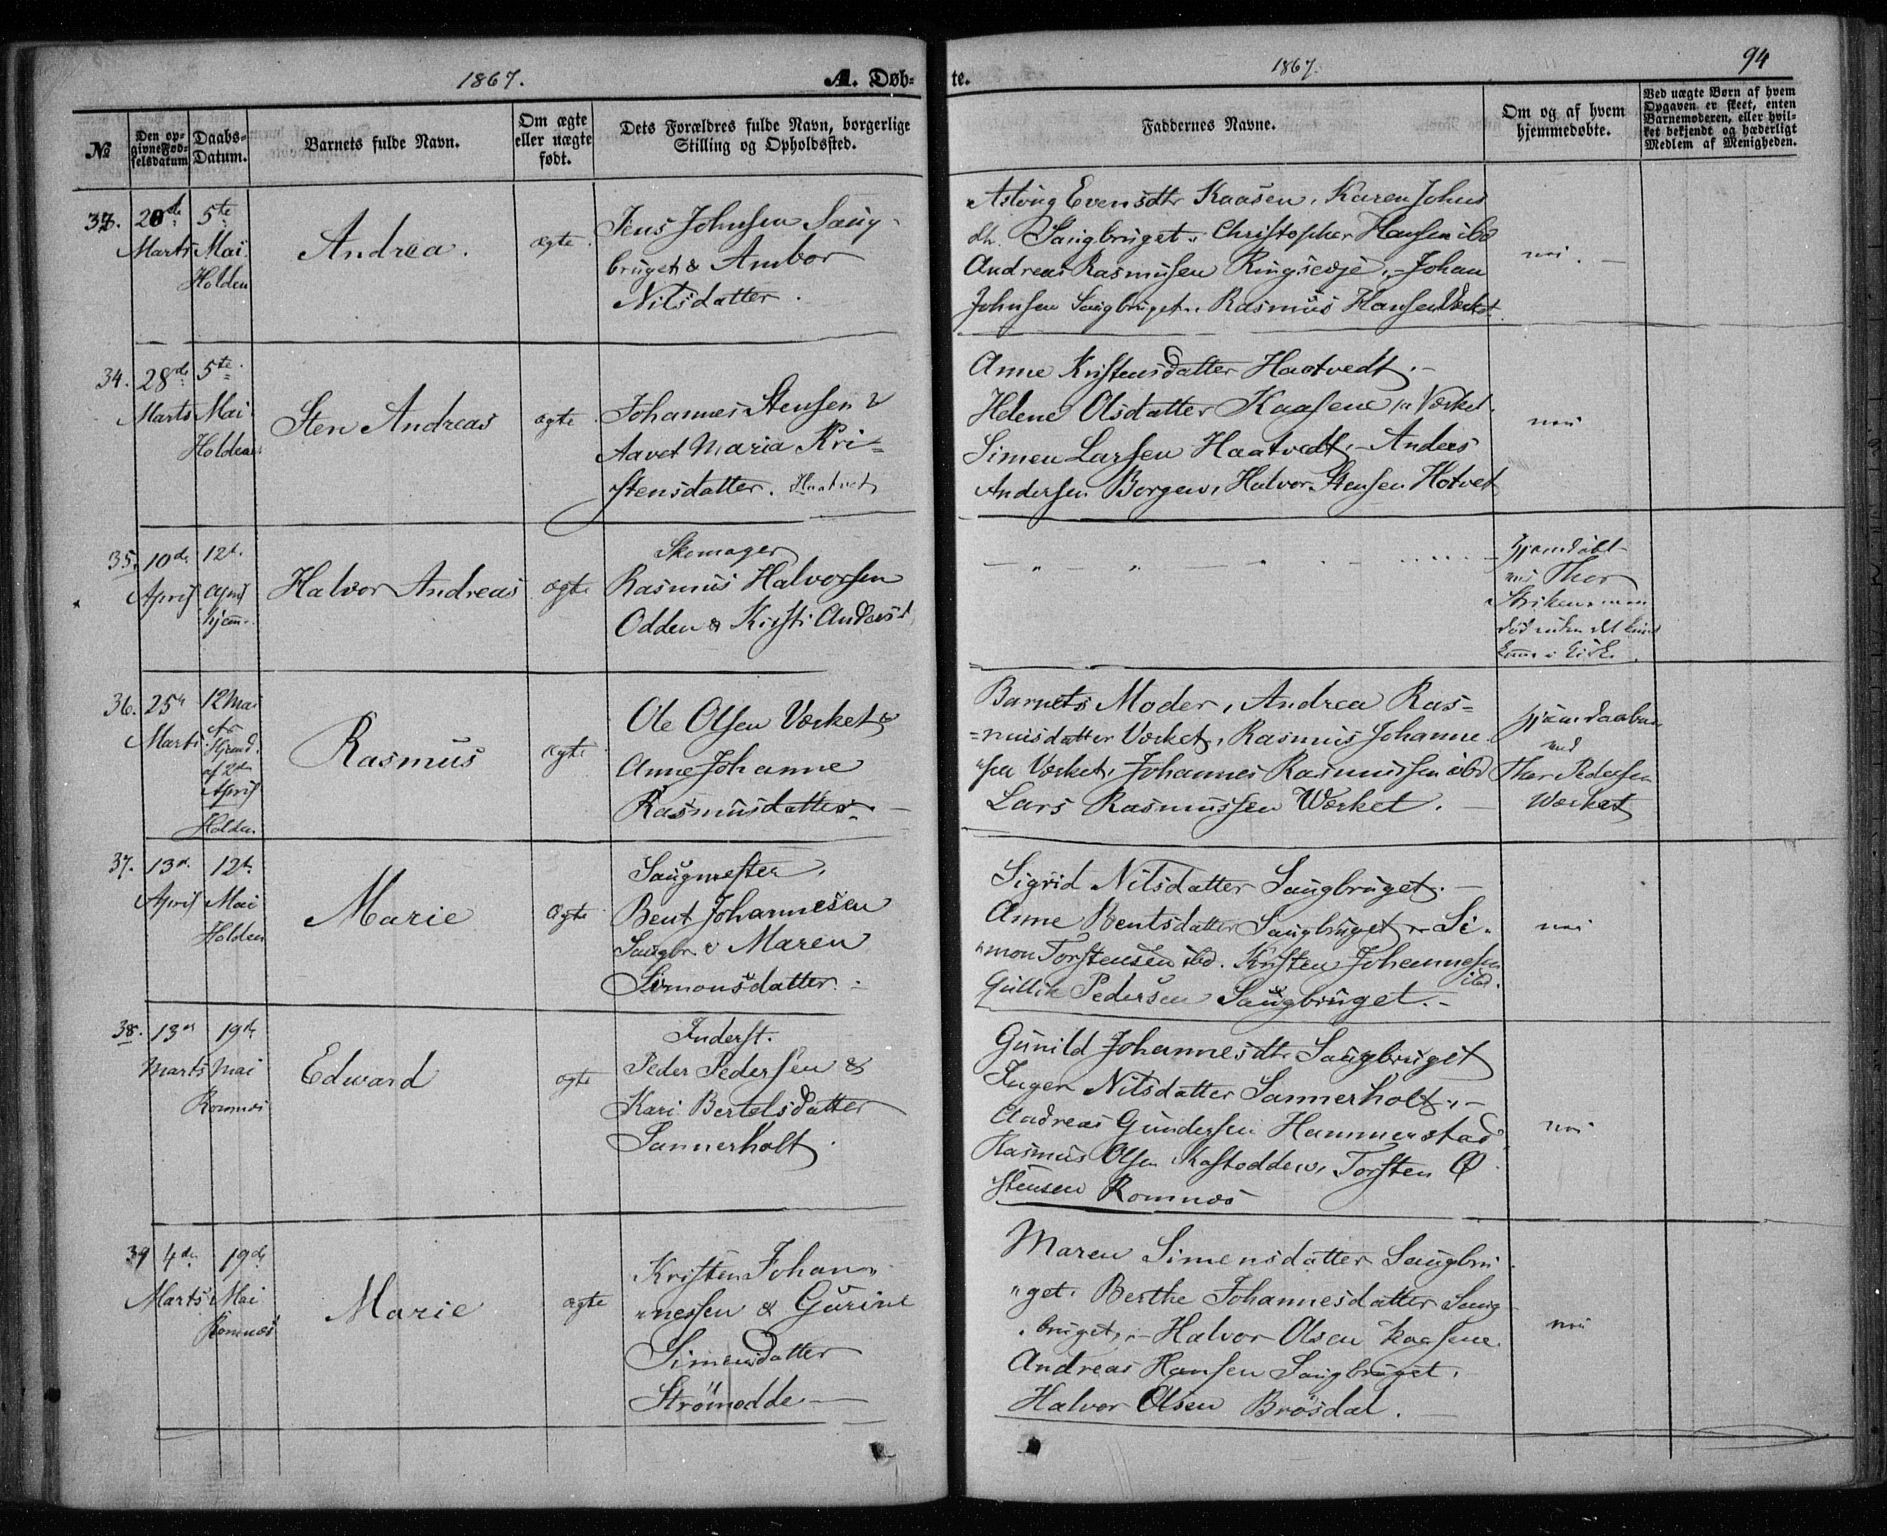 1867.
A. Døb-
№
Den op-
givne Fød-
selsdatum
Daabs-
Datum.
Barnets fulde Navn.
Om ægte
eller uægte
født.
Dets Forældres fulde Navn, borgerlige
Stilling og Opholdssted.
33. 20de 5te
Marts Mai
Holden
Andrea.
ægte.
Jens Johnsen Saug-
bruget & Ambor
Nilsdatter.
34. 28de 5te
Marts Mai
Holden
Sten Andreas
ægte
Johannes Stensen &
Aavet Maria Kri-
stensdatter. Haatvet
35. 10de 12te
April April
hjem.
Halvor Andreas
ægte
Skomager
Rasmus Halvorsen
Odden & Kirsti Andersd.
36. 25de 12 Mai
Marts
af 2den
April
Holden
Rasmus
ægte
Ole Olsen Værket &
Anne Johanne
Rasmusdatter.
37. 13de 12te
April Mai
Holden
Marie
ægte
Saugmester
Bent Johannesen
Saugbr. & Maren
Simonsdatter.
38. 13de 19de
Marts Mai
Romnes
Edward
ægte
Inderst.
Peder Pedersen &
Kari Bertelsdatter
Sannerholt.
39 4de 19de
Marts Mai
Romnæs
Marie
ægte
Kristen Johan-
"nessen & Gurine
Simensdatter
Strømodde
1867.
94
te.
Faddernes Navne.
Om og af hvem
hjemmedøbte.
Ved uægte Børn af hvem
Opgaven er skeet, enten
Barnemoderen, eller hvil-
ket bekjendt og hæderligt
Medlem af Menigheden.
Aslaug Evensdtr Kaasen, Karen Johns
dtr. Saugbruget. Christopher Hansen ibd
Andreas Rasmusen Ringsevje, Johan
Johnsen Saugbruget. Rasmus Hansen Værket.
nei.
Anne Kristensdatter Haatvedt.
Helene Olsdatter Kaasene v. Værket.
Simen Larsen Haatvedt, Anders
Andersen Borgen, Halvor Stensen Hotvet
nei
Hjemdøbt
Thor
død uden det kunde
komme i Kirke.
Barnets Moder, Andrea Ras-
=musdatter Værket, Rasmus Johanne
"sen Værket, Johannes Rasmussen ibd
Lars Rasmussen Værket.
hjemdaaben
ved
Thor Pedersen
Værket
Sigrid Nilsdatter Saugbruget.
Anne Bentsdatter Saugbruget Si-
"mon Torstensen ibd. Kristen Johannesen
ibd.
Gullik Pedersen Saugbruget.
nei
Gunild Johannesdtr Saugbruget
Inger Nilsdatter Sannerholt,
Andreas Gundersen Hammerstad
Rasmus Olsen Kastodden, Torsten Ø
stensen Romnæs
nei
Maren Simensdatter Saugbru
"get. Berthe Johannesdatter Saug
"bruget, Halvor Olsen Kaasene
Andreas Hansen Saugbruget.
Halvor Olsen Brösdal.
nei